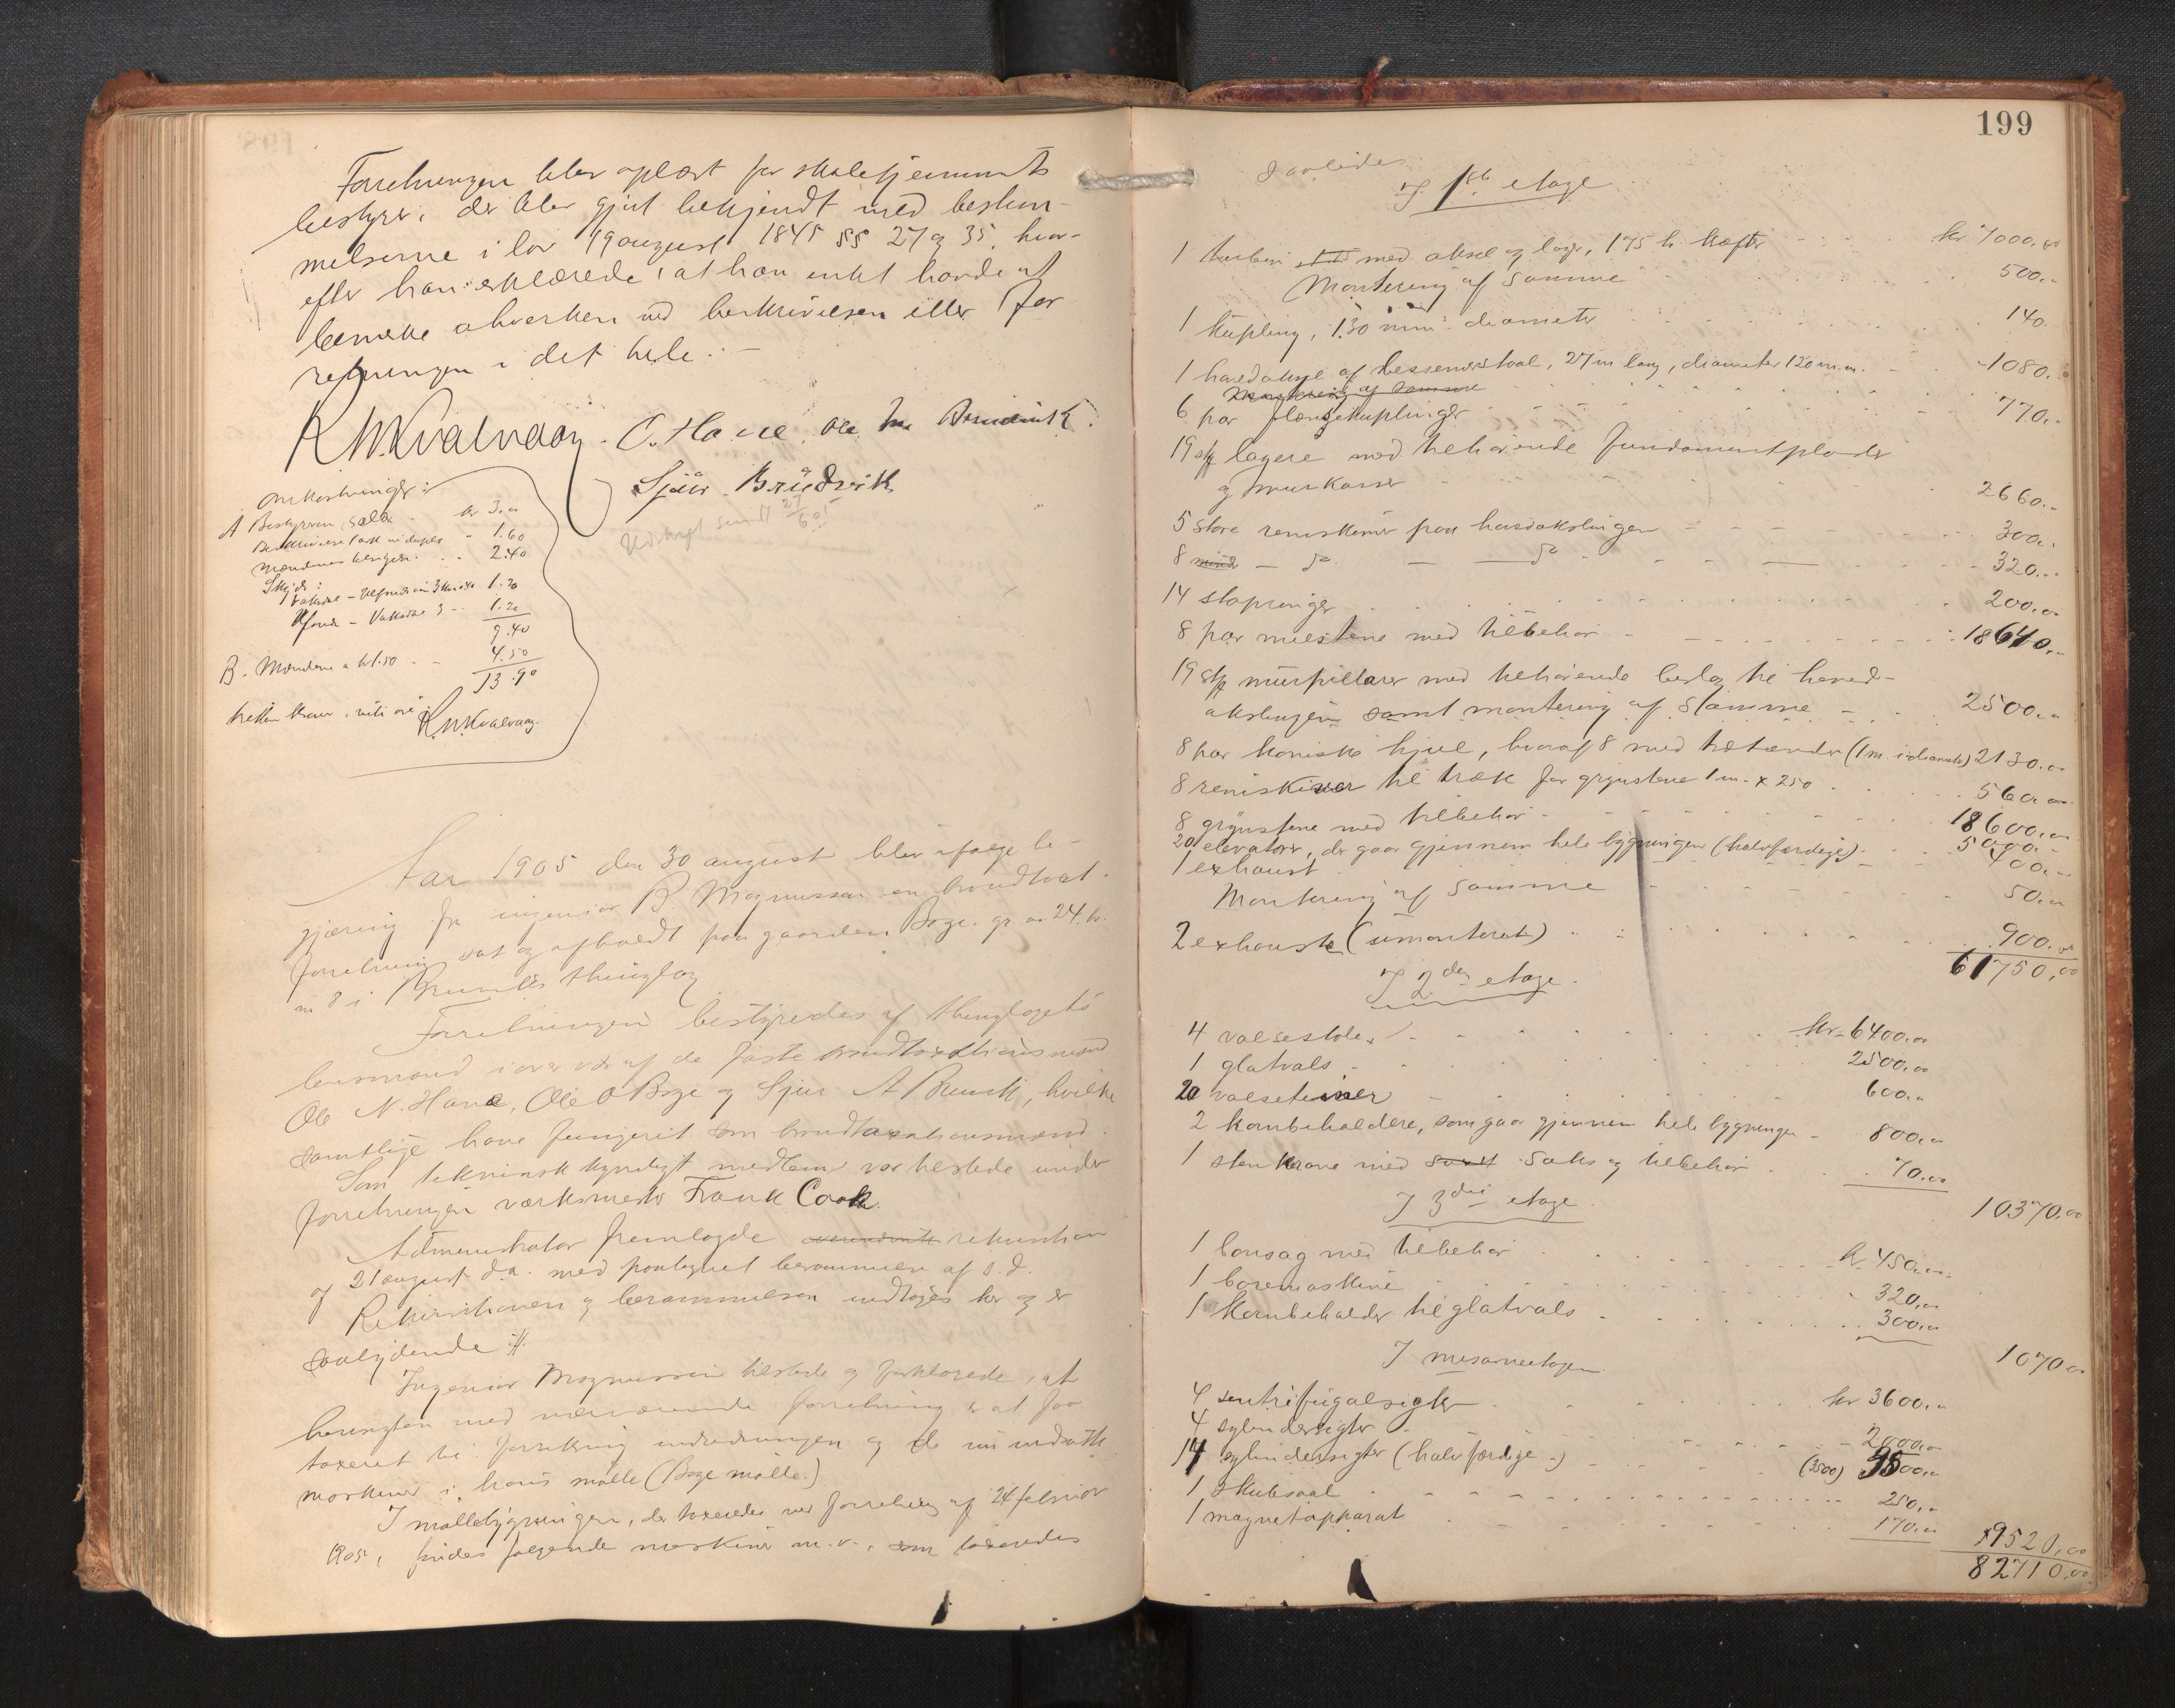 Forretningen blev oplæst for skolehjemmets
bestyrer, der blev gjort bekjendt med bestem-
melserne i lov 19 august 1845 §§ 27 og 35, hvor-
efter han erklærede, at han intet havde at
bemerke ahverken ved beskrivelsen eller For
retningen i det hele. —
R. M. Kvalvaag. O. Hane. Ole
Sjur Brüdvik
Udskrift sendt 27/9 05
Omkostninger:
A Bestyreren, salær kr 3.00
Beskrivelse takst in duplo " 1.60
Mændenes 2.40
Skyds:
Vaksdal – 3 1.20
– Vaksdal 3 – 1.20
9.40
B. Mændene a kr 1.50 - - 4.50
13.90
tretten Kroner, niti øre.
R. M. Kvalvaag.
Aar 1905 den 30 august blev ifølge be-
gjæring fra ingeniør B. Magnussen en brandtaxt-
forretning sat og afholdt paa gaarden Boge, gr. nr 24. br.
nr 8 i Bruviks thinglag
Forretningen bestyredes af thinglagets
lensmand i overvær af de faste brandtaxationsmænd
Ole N. Hane, Ole O Boge og Sjur A Bruvik, hvilke
samtlige have fungeret som brandtaxationsmænd.
Som teknisk kyndigt medlem var tilstede under
forretningen værksmester Frank Cook.
Administrator fremlagde rekvisition
af 21 august d.a. med paategnet berammelse af s.d.
Rekvisitionen og berammelsen indtages her og er
saalydende :/:
Ingeniør Magnussen tilstede og forklarede, at
hensigten med nærværende forretning er at faa
taxeret til forsikring indredningen og de nu indsatte
maskiner i hans mølle (Boge mølle.)
I møllebygningen, der taxeredes ved forretning af 24 februar
1905, findes følgende maskiner m.v., som taxeredes
199
saaledes
I 1ste etage
1 turbin med aksel og lager, 175 h. kræfter - - - kr 7000.00
Montering af samme - 500.-
1 kupling, 130 mm: diameter 140.
1 hovedaksel af bessemerstaal, 27 m lang, diameter 120 m.m. - 1080.-
Montering af samme
6 par flangekuplinger 770.-
19 stk lagere med tilhørende fundamentplader
og murkasser - 2660.-
5 store remskiver paa hovedakslingen - - - 300.-
8 mind — do — do - - - 320.-
14 stopringer - 200.00
8 par mølestene med tilbehør - - - 18640.-
19 stk murpillarer med tilhørende beslag til hoved-
akslingen samt montering af samme - - 2500.00
8 par koniske hjul, hvoraf 8 med trætænder (1 m. i diameter) 2130.00
8 remskiver til træk for grynstene 1 m. x 250 - 560.00
8 grynstene med tilbehør - 18600.00
20 elevatorer, der gaar gjennem hele bygningen (halvfærdige) - 5000.-
1 exhaust - 400.-
Montering af samme - 50.00
2 exhauste (umonterede) - 900.00
61750,00
I 2den etage.
4 valsestole - kr. 6400.00
1 glatvals - 2500.00
20 valseteiner - 600.00
2 kornbeholdere, som gaar gjennem hele bygningen - 800.00
1 stenkrane med saks og tilbehør - 70.00
10370.00
I 3die etage
1 baandsag med tilbehør - kr 450.00
1 boremaskine - 320.00
1 kornbeholder til glatvals - 300.00
1070.00
I mesaninetagen
4 sentrifugalsigter - kr 3600.00
4 sylindersigter - 2000.00
14 sylindersigter (halvfærdige) - (3500) 3500.00
1 skuffesaal - 250.00
1 magnetapparat - 170.00
9520.00
82710.00